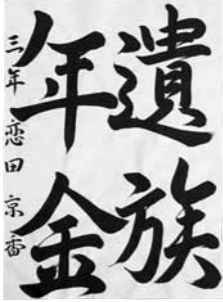 遺族
年金
三年 恋田京香